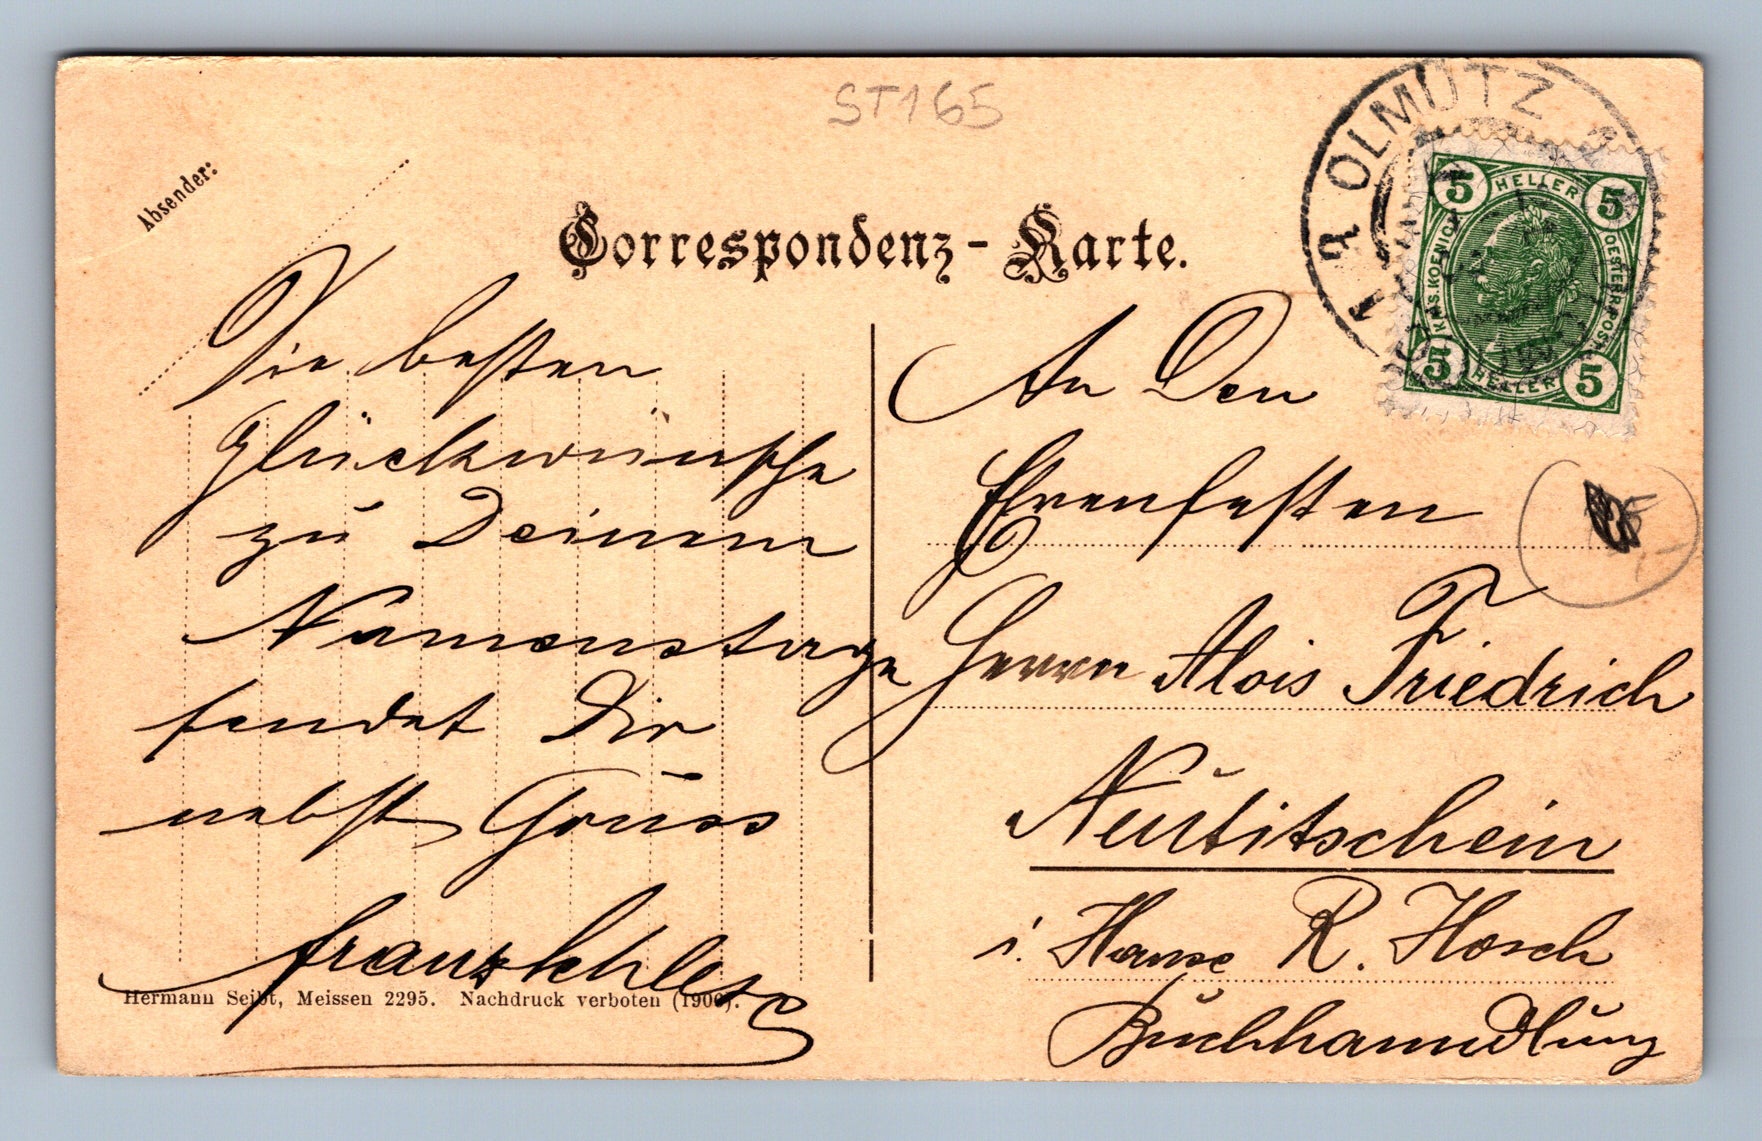 ST165
Absender:
Correspondenz-Karte.
OLMÜTZ
5 HELLER 5
KAIS. KOENIGL. OESTERR. POST
5 HELLER 5
Die besten
Glückwünsche
zu Deinem
Namenstage
sendet Dir
nebst Gruss
Franz
An Den
Ehrenfesten
Herrn Alois Friedrich
Neutitschein
i. Hause R. Hosch
Buchhandlung
Hermann Seibt, Meissen 2295. Nachdruck verboten (1906).